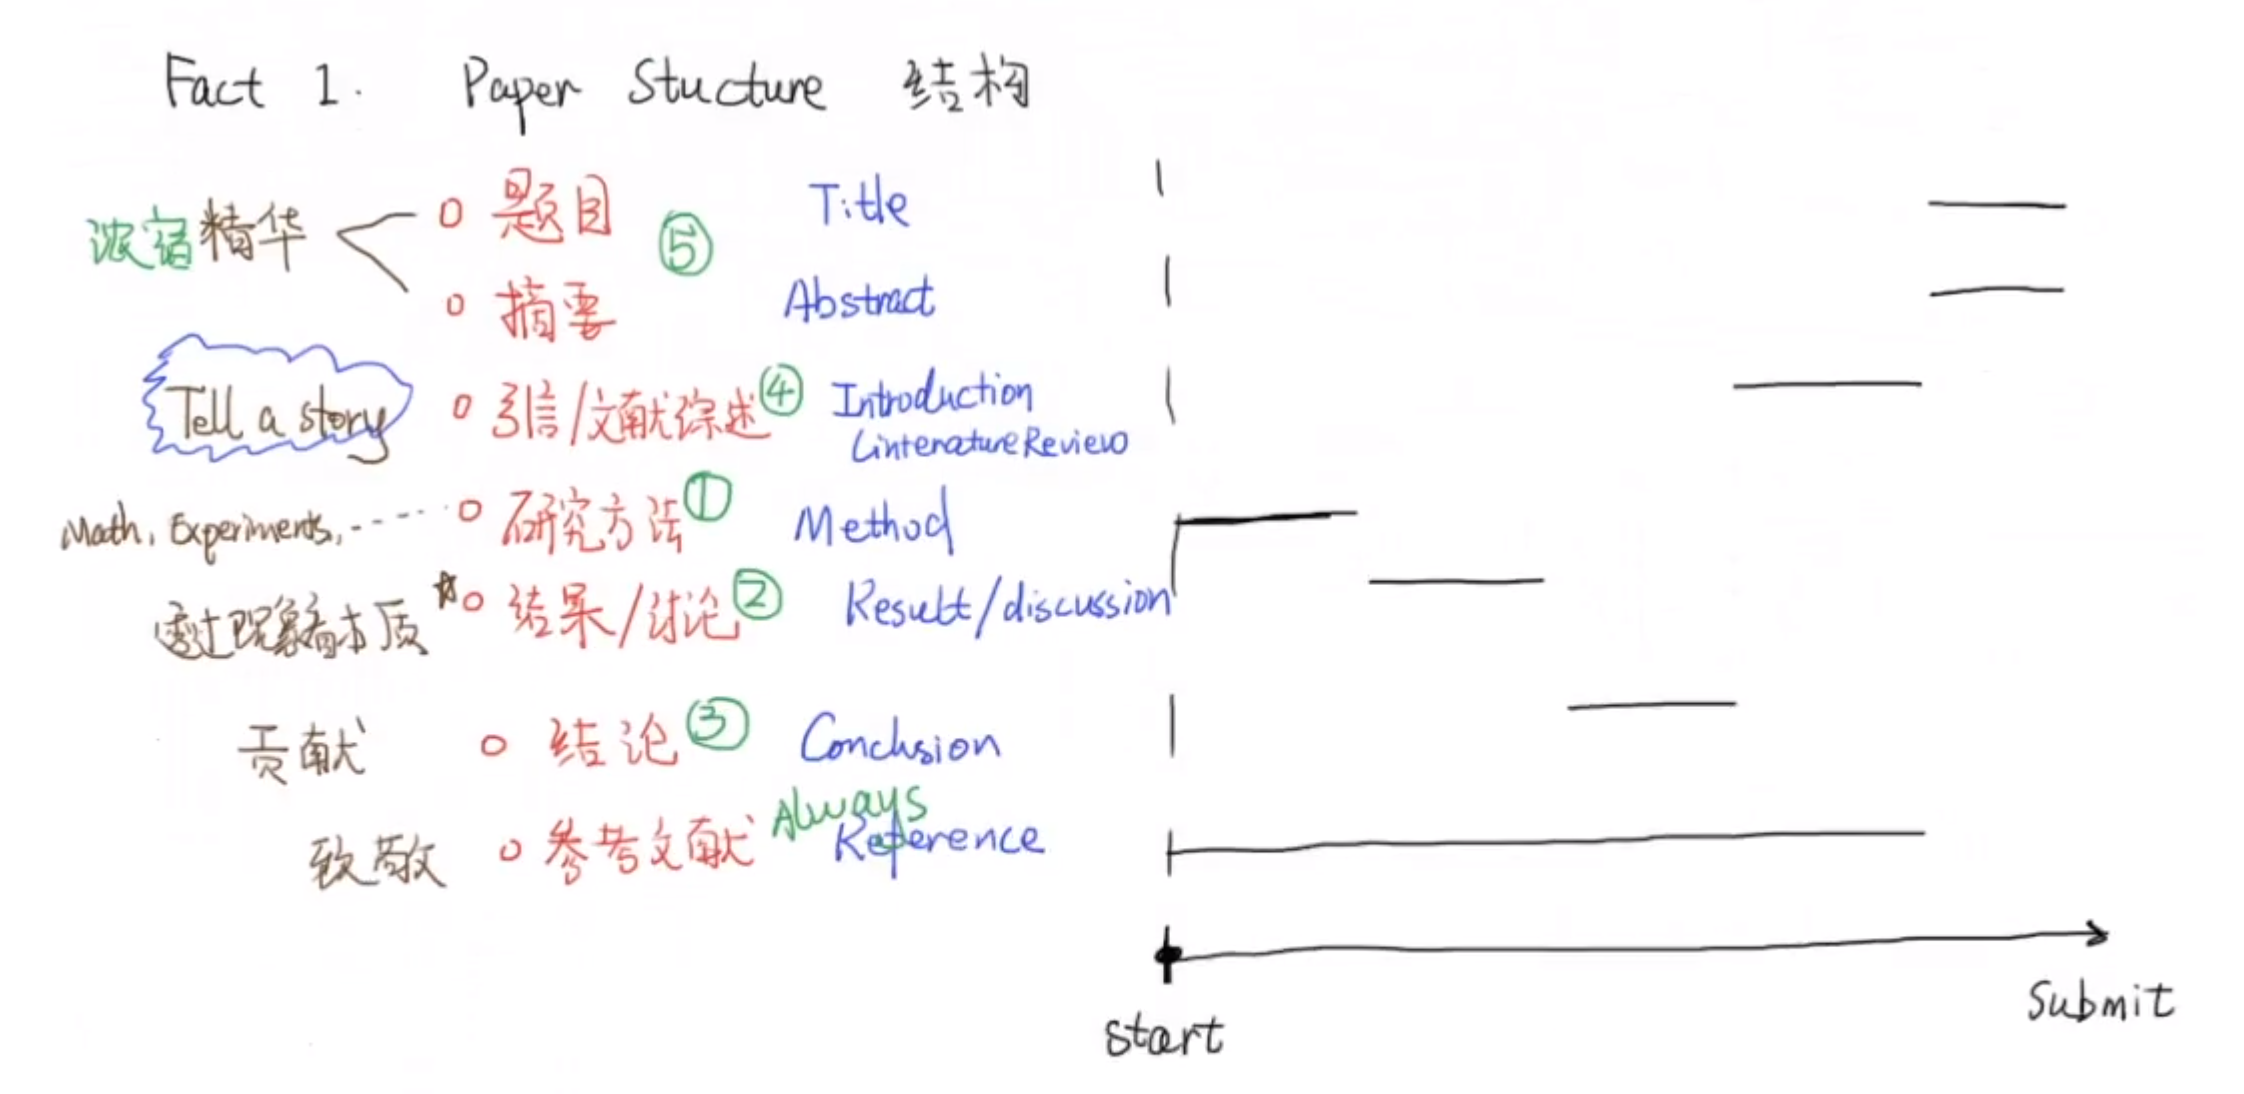 Fact 1. Paper Stucture 结构
浓宿精华 题目 ⑤ Title
摘要 Abstract
Tell a story 引言/文献综述 ④ Introduction
LinteratureReview
Math, Experiments, 研究方法 ① Method
透过现象看本质 ☆ 结果/讨论 ② Result/discussion
贡献 结论 ③ Conclusion
Always
致敬 参考文献 Reference
Start
Submit